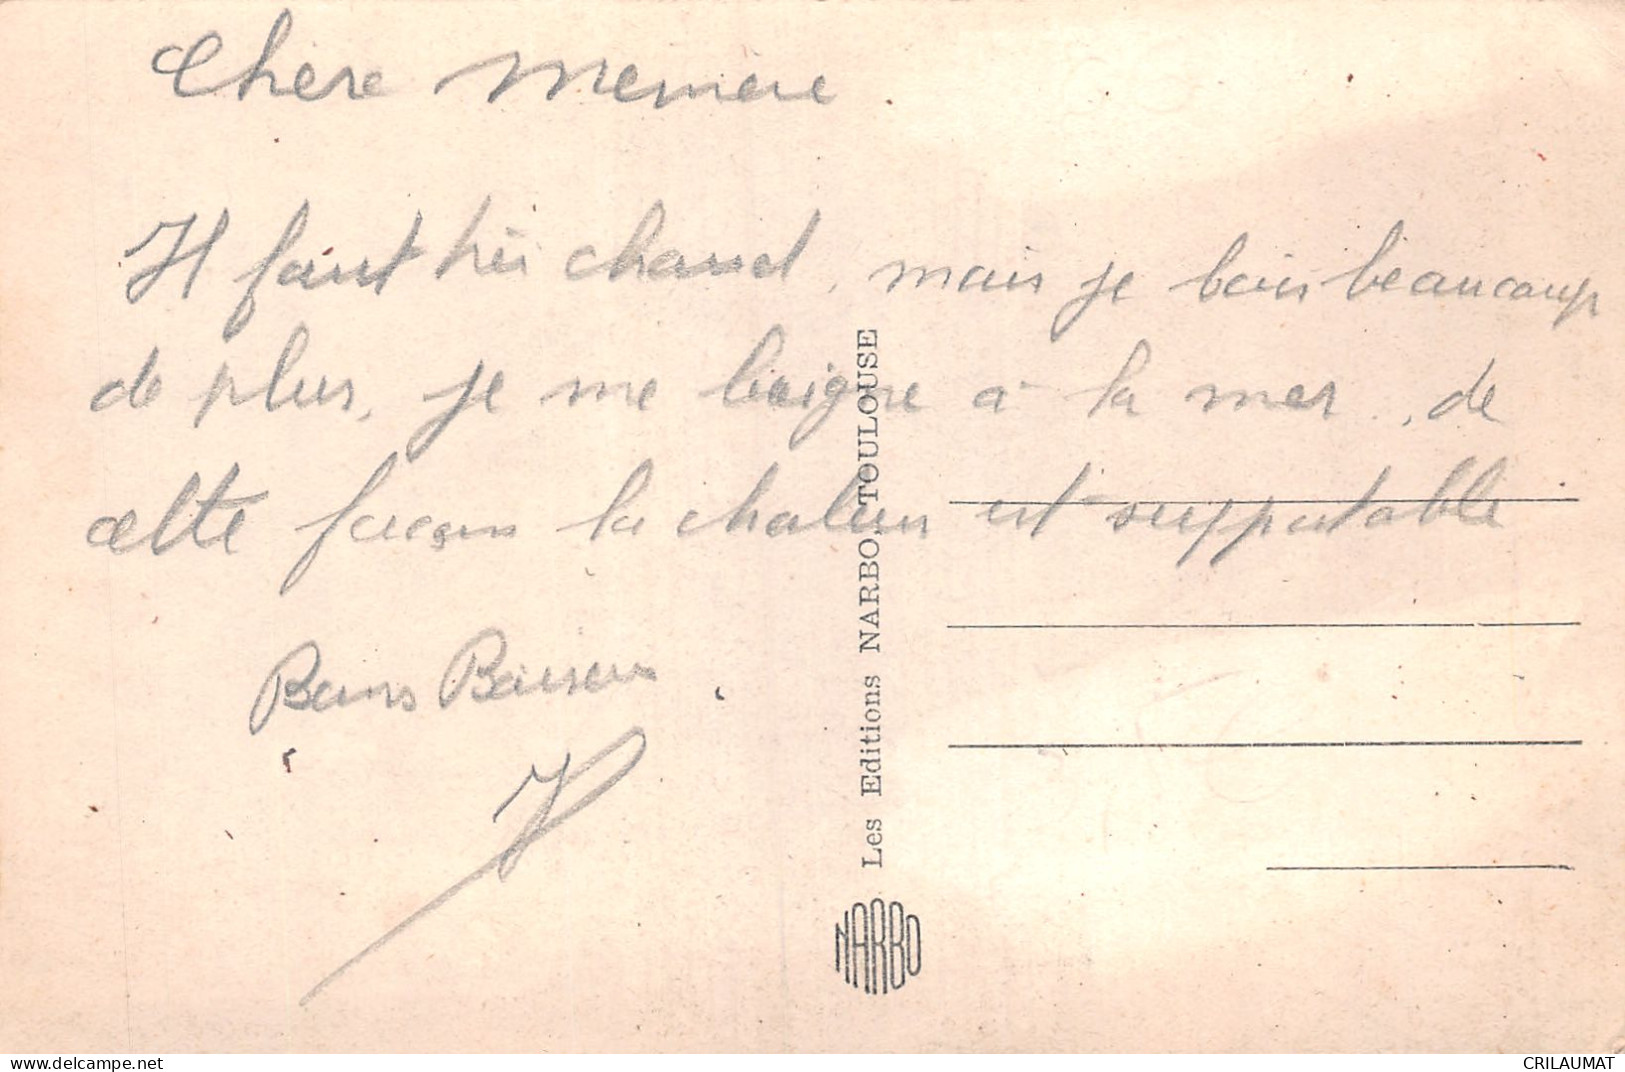 Chere Memere
Il faut très chaud, mais je bois beaucoup
de plus, je me baigne à la mer, de
cette façons la chaleur est supportable
Bons Baisers
Les Editions NARBO, TOULOUSE
NARBO
www.delcampe.net
CRILAUMAT